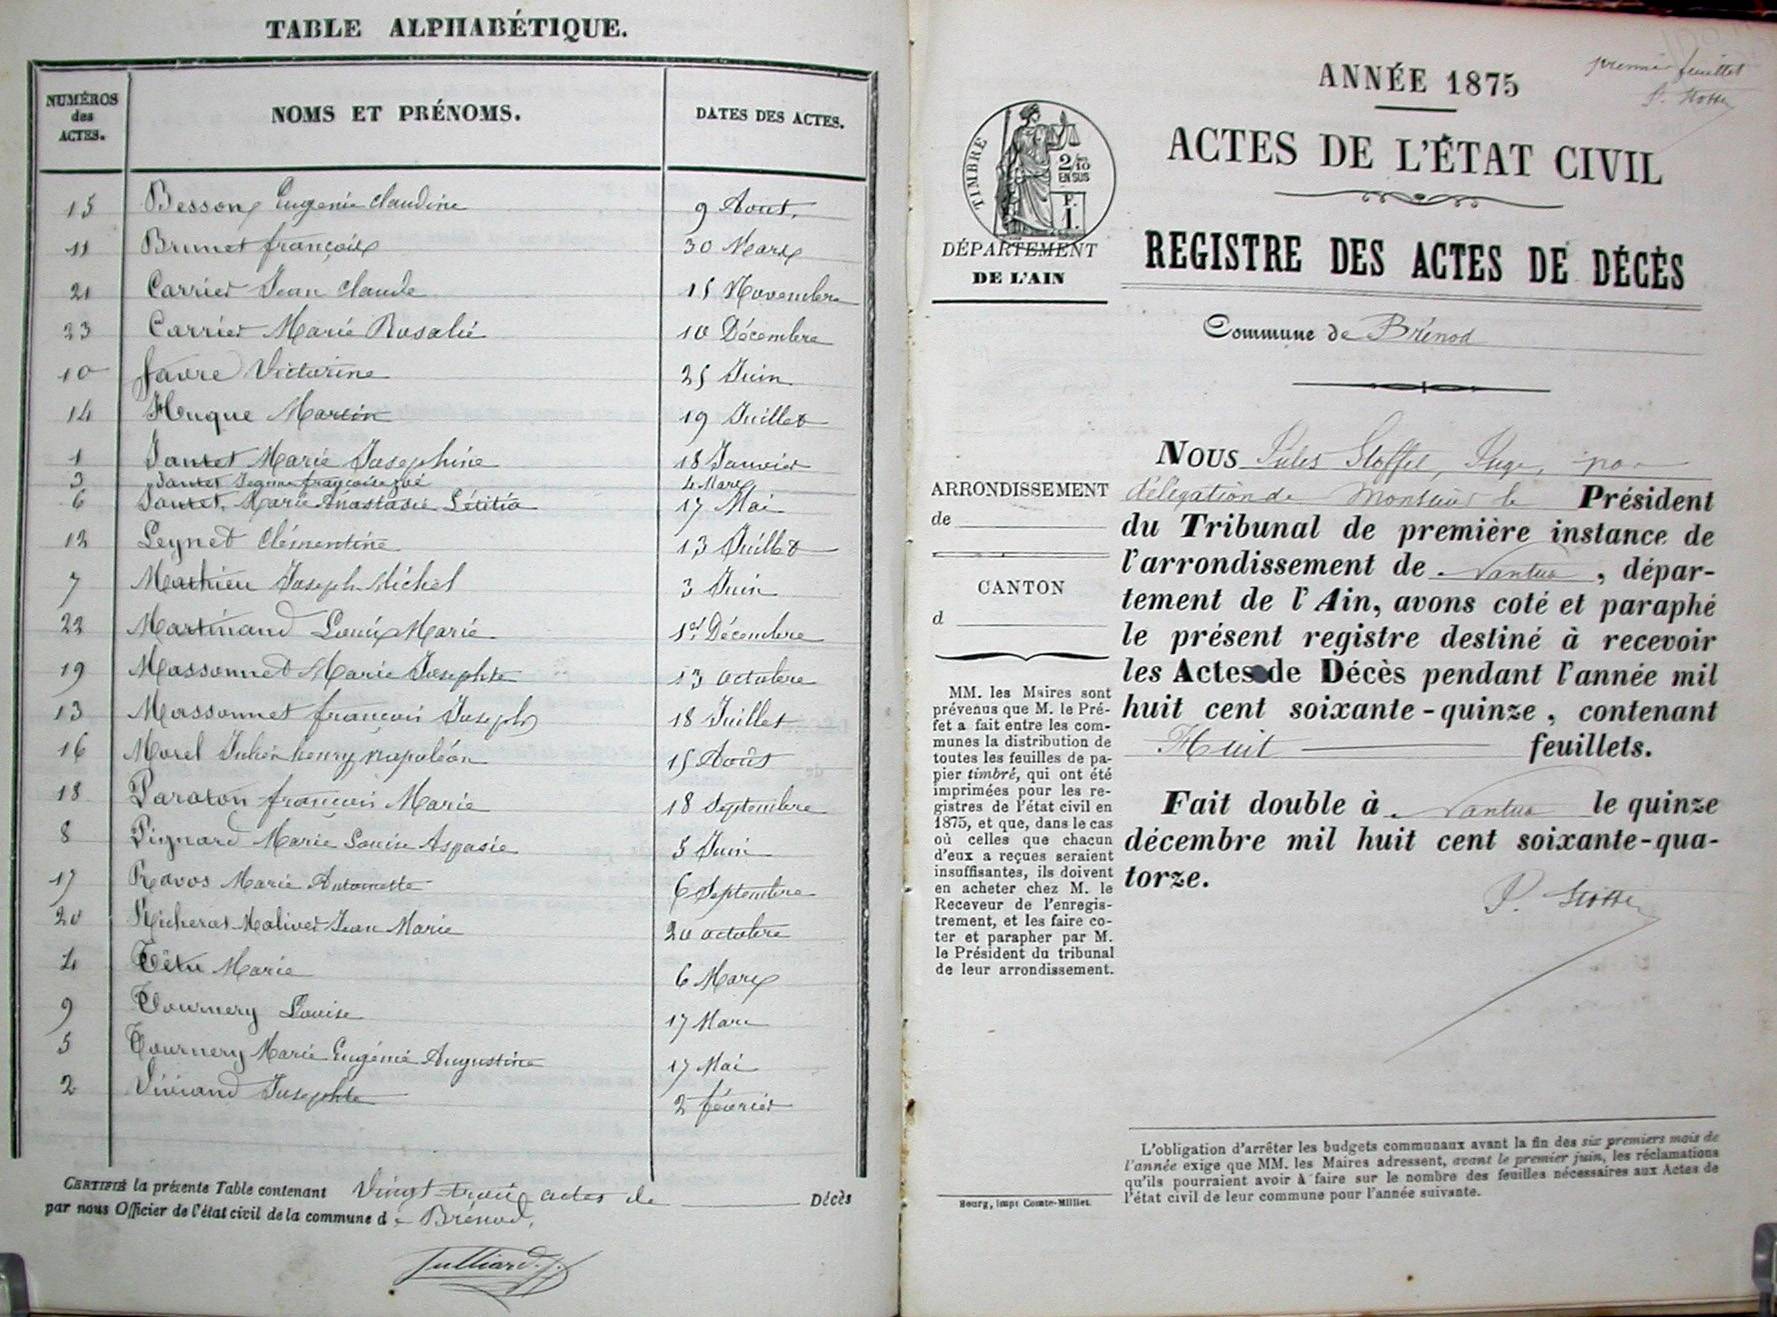 TABLE ALPHABÉTIQUE.
NUMÉROS des ACTES. NOMS ET PRÉNOMS. DATES DES ACTES.
15 Besson Eugénie Claudine 9 Aout.
11 Brunet françois 30 Mars
21 Carrier Jean Claude 15 Novembre
23 Carrier Marie Rosalie 10 Décembre
10 favre Victorine 25 Juin
14 Hugue Martin 19 Juillet
1 Jantet Marie Josephine 18 Janvier
3 Jantet françoise 4 Mars
6 Jantet Marie Anastasie Létitia 17 Mai
12 Leynet Clémentine 13 Juillet
7 Mathieu Joseph Michel 3 Juin
22 Martinand Louis Marie 1er Décembre
19 Massonnet Marie Josephte 13 octobre
13 Massonnet françois Joseph 18 Juillet
16 Morel Julien henry napoléon 15 Août
18 Paraton françois Marie 18 Septembre
8 Pignard Marie Louise Aspasie 5 Juin
17 Ravos Marie Antoinette 6 Septembre
20 Richerot Jean Marie 20 octobre
4 Têtu Marie 6 Mars
9 Tournery Louise 17
5 Tournery Marie Eugénie Augustine 17 Mai
2 Viviand Josephte 2 février
CERTIFIÉ la présente Table contenant Vingt trois actes de Décès
par nous Officier de l'état civil de la commune d e Brénod.
Julliard
premier feuillet
ANNÉE 1875
ACTES DE L'ÉTAT CIVIL
TIMBRE
2/10 EN SUS
F. 1.
DÉPARTEMENT
DE L'AIN
REGISTRE DES ACTES DE DÉCÈS
Commune de Brénod
NOUS Jules Stoffel, Juge, par
délégation de Monsieur le Président
du Tribunal de première instance de
l'arrondissement de Nantua, dépar-
tement de l'Ain, avons coté et paraphé
le présent registre destiné à recevoir
les Actes de Décès pendant l'année mil
huit cent soixante-quinze, contenant
Huit feuillets.
Fait double à Nantua le quinze
décembre mil huit cent soixante-qua-
torze.
ARRONDISSEMENT
de
CANTON
d
MM. les Maires sont
prévenus que M. le Pré-
fet a fait entre les com-
munes la distribution de
toutes les feuilles de pa-
pier timbré, qui ont été
imprimées pour les re-
gistres de l'état civil en
1875, et que, dans le cas
où celles que chacun
d'eux a reçues seraient
insuffisantes, ils doivent
en acheter chez M. le
Receveur de l'enregis-
trement, et les faire co-
ter et parapher par M.
le Président du tribunal
de leur arrondissement.
Bourg, impr Comte-Milliet.
L'obligation d'arrêter les budgets communaux avant la fin des six premiers mois de
l'année exige que MM. les Maires adressent, avant le premier juin, les réclamations
qu'ils pourraient avoir à faire sur le nombre des feuilles nécessaires aux Actes de
l'état civil de leur commune pour l'année suivante.